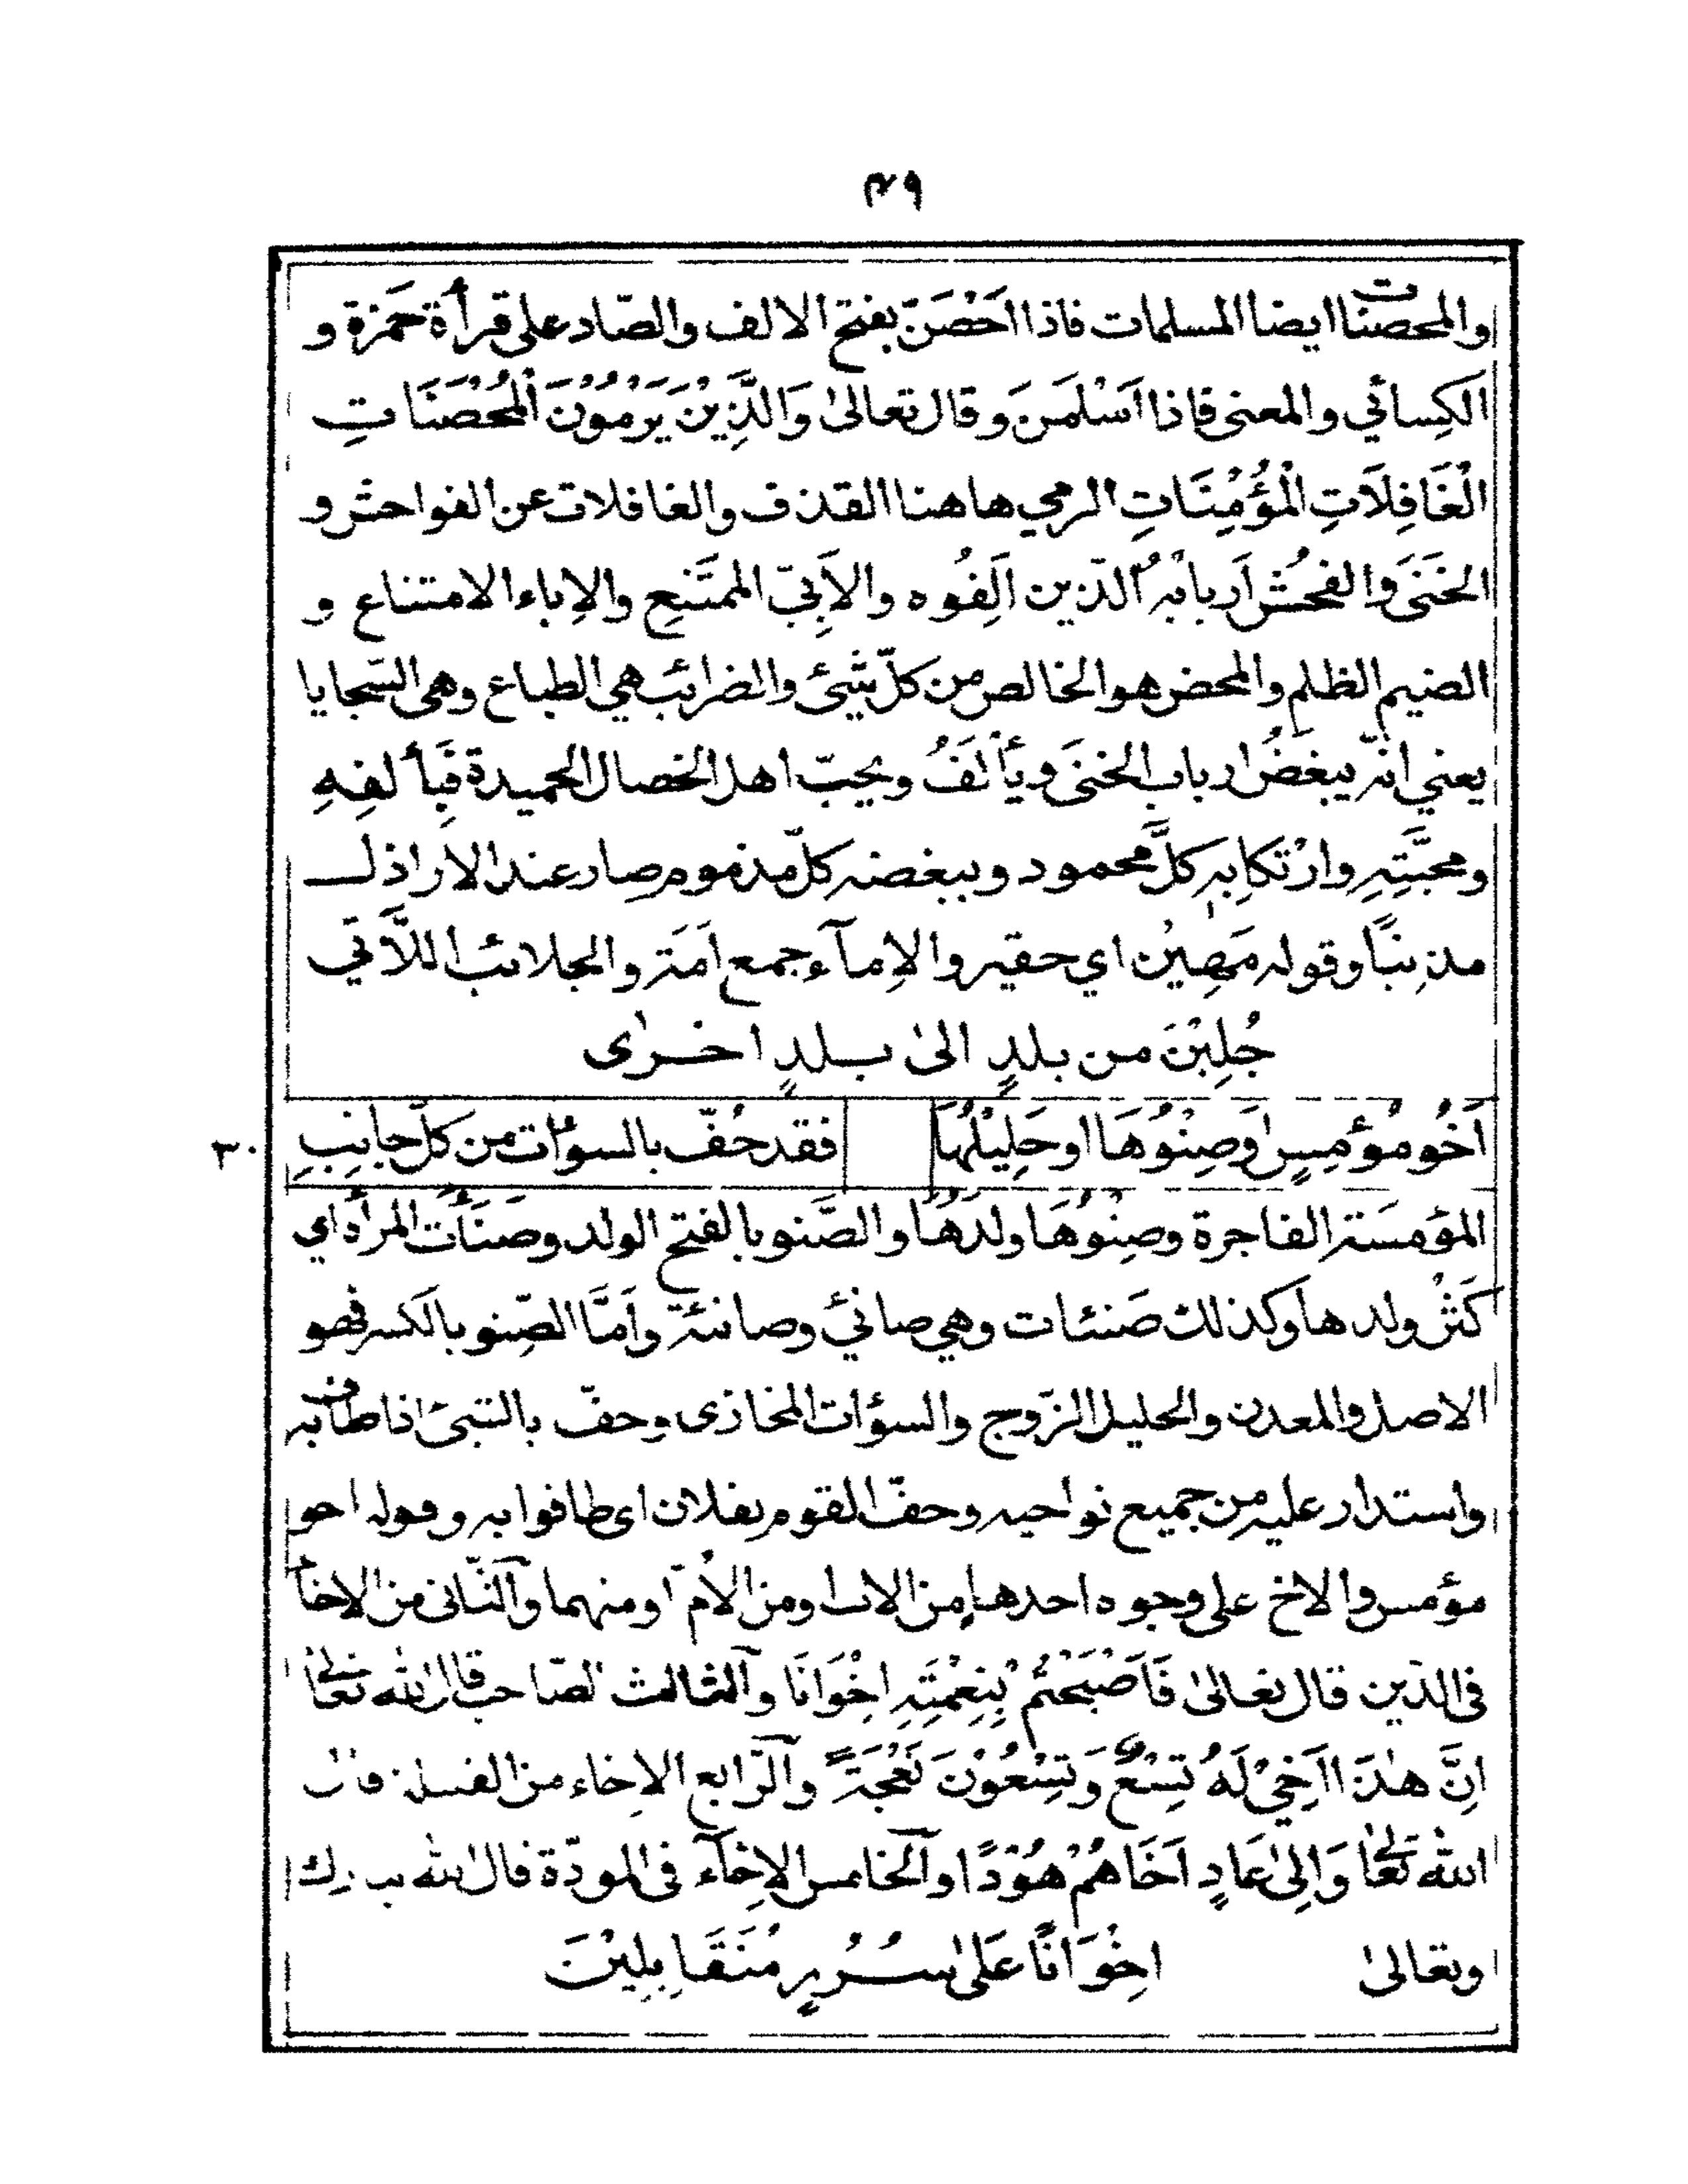 ٤٩
والمحصنات ايضا المسلمات فاذا اَحْصَنَّ بفتح الالف والصّاد على قرأة حَمزة و
الكِسائي والمعنى فاذا اَسْلَمَنَ وقال تعالىٰ وَالَّذِيْنَ يَرْمُوْنَ الْمُحْصَنَاتِ
الْغَافِلَاتِ الْمُؤْمِنَاتِ الرمي هاهنا القذف والغافلات عن الفواحش و
الخَنَىٰ والفحُش اَربابُہُ الذين اَلِفُوه والاَبِيّ الممتَنِع والاِباء الامتناع و
الضيم الظلم والمحض هو الخالص من كلّ شيئ والضرائب هي الطباع وهي السّجايا
يعني انّہ يبغضُ ارباب الخنىٰ ويَأْلَفُ ويحبّ اهل الخصال الحميدة فَبِأَلفِهِ
ومحبَّتِہِ وارْتكابِہٖ كلَّ محمود وببغضہ كلّ مذموم صار عند الاراذل
مذنِبًا وقولہ مَهِيْن اي حقير والاِمآء جمع اَمَة والجلائب اللَّاتي
جُلِبْنَ من بلدٍ الىٰ بلدٍ اخرىٰ
اَخُو مُؤْمِسٍ اَوصِنْوُهَا اوحَلِيْلُهَا فقد حُفّ بالسوءٰات من كلّ جانِبِ
٣٠
المؤمسَة الفاجرة وصِنْوُهَا ولدُهَا والصَّنو بالفتح الولد وصَنَأَت المرأة اي
كَثُر ولدها وكذلك صَنئات وهي صانئ وصانئة واَمَّا الصِّنو بالكسر فهو
الاصل والمعدن والحليل الزّوج والسؤات المخازى وحفّ بالشيئ اذا طاف بہ
واستدار عليہ من جميع نواحيہ وحفّ القوم بفلان اى طافوا بہ وقولہ اخو
مؤمس والاخ على وجوه احدها من الاب او من الأم او منهما وآلثّانى من الاخاء
فى الدّين قال تعالىٰ فَاَصْبَحْتُمْ بِنِعْمَتِہِ اِخْوَانًا وآلثالث الصّاحب قال اللّٰه تعالىٰ
اِنَّ هٰذَا اَخِيْ لَهُ تِسْعٌ وَتِسْعُوْنَ نَعْجَةً وآلرّابع الاِخاء من القبيلة قال
اللّٰه تعالىٰ وَاِلىٰ عَادٍ اَخَاهُمْ هُوْدًا وآلخامس الاِخآء فى المودّة قال اللّٰه تبارك
وتعالىٰ اِخْوَانًا عَلىٰ سُرُرٍ مُتَقَابِلِيْنَ